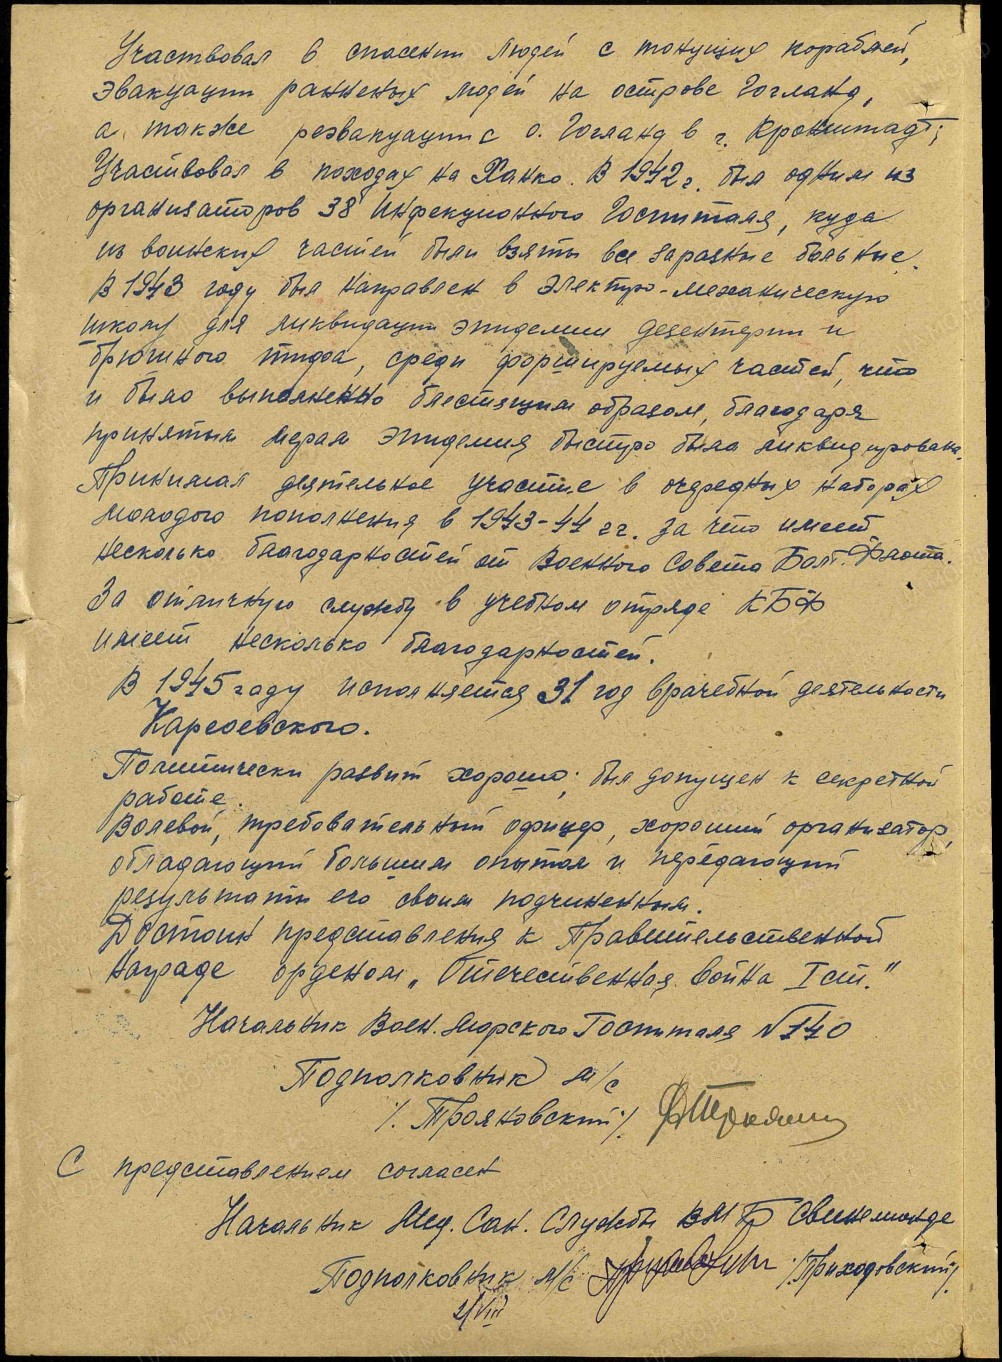 Участвовал в спасении людей с тонущих кораблей,
эвакуации раненых людей на острове Гогланд,
а также реэвакуации с о. Гогланд в г. Кронштадт;
Участвовал в походах на Ханко. В 1942 г. был одним из
организаторов 38 Инфекционного Госпиталя, куда
из воинских частей были взяты все заразные больные.
В 1943 году был направлен в Электро-механическую
школу для ликвидации эпидемии дезентерии и
брюшного тифа, среди формируемых частей, что
и было выполненно блестящим образом, благодаря
принятым мерам эпидемия быстро была ликвидирована.
Принимал деятельное участие в очередных наборах
молодого пополнения в 1943-44 гг. за что имеет
несколько благодарностей от Военного Совета Балт. Флота.
За отличную службу в учебном отряде КБФ
имеет несколько благодарностей.
В 1945 году исполняется 31 год врачебной деятельности
Карсевского.
Политически развит хорошо; был допущен к секретной
работе.
Волевой, требовательный офицер, хороший организатор,
обладающий большим опытом и передающий
результаты его своим подчиненным.
Достоин представления к Правительственной
награде орденом „Отечественная война I ст."
Начальник Воен. Морского Госпиталя №140
Подполковник м/с
/. Трояновский ./.
С представлением согласен
Начальник Мед. Сан. Службы ВМБ Свинемюнде
Подполковник м/с /.Приходовский/.
2/VIII